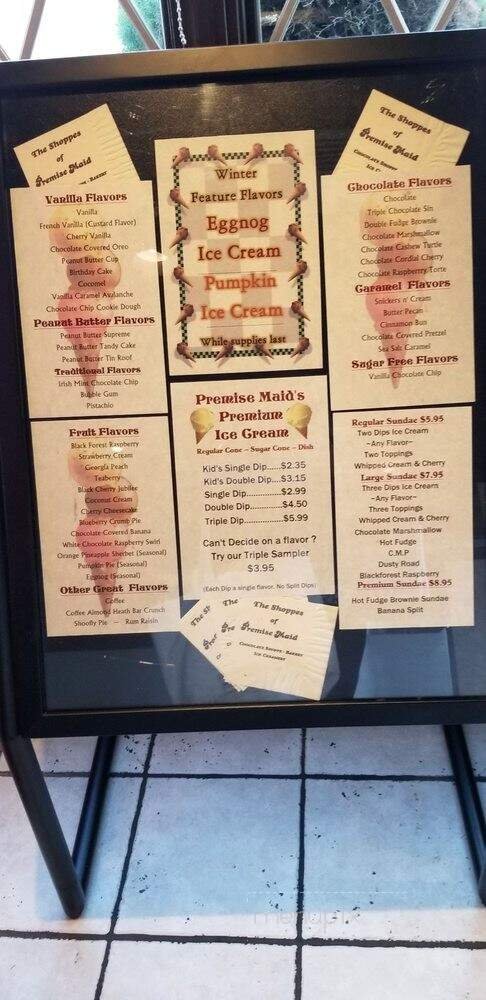 The Shoppes
of
Premise Maid
- Bakery
Vanilla Flavors
Vanilla
French Vanilla (Custard Flavor)
Cherry Vanilla
Chocolate Covered Oreo
Peanut Butter Cup
Birthday Cake
Cocomel
Vanilla Caramel Avalanche
Chocolate Chip Cookie Dough
Peanut Butter Flavors
Peanut Butter Supreme
Peanut Butter Tandy Cake
Peanut Butter Tin Roof
Traditional Flavors
Irish Mint Chocolate Chip
Bubble Gum
Pistachio
Fruit Flavors
Black Forest Raspberry
Strawberry Cream
Georgia Peach
Teaberry
Black Cherry Jubilee
Coconut Cream
Cherry Cheesecake
Blueberry Crumb Pie
Chocolate Covered Banana
White Chocolate Raspberry Swirl
Orange Pineapple Sherbet (Seasonal)
Pumpkin Pie (Seasonal)
Eggnog (Seasonal)
Other Great Flavors
Coffee
Coffee Almond Heath Bar Crunch
Shoofly Pie — Rum Raisin
Winter
Feature Flavors
Eggnog
Ice Cream
Pumpkin
Ice Cream
While supplies last
Premise Maid's
Premium
Ice Cream
Regular Cone ~ Sugar Cone ~ Dish
Kid's Single Dip.....$2.35
Kid's Double Dip....$3.15
Single Dip.............$2.99
Double Dip............$4.50
Triple Dip..............$5.99
Can't Decide on a flavor ?
Try our Triple Sampler
$3.95
(Each Dip a single flavor. No Split Dips)
The Shoppes
of
Premise Maid
Chocolate Shoppe - Bakery
Ice Creamery
The Shoppes
of
Premise Maid
Chocolate Shoppe
Ice C
Chocolate Flavors
Chocolate
Triple Chocolate Sin
Double Fudge Brownie
Chocolate Marshmallow
Chocolate Cashew Turtle
Chocolate Cordial Cherry
Chocolate Raspberry Torte
Caramel Flavors
Snickers n' Cream
Butter Pecan
Cinnamon Bun
Chocolate Covered Pretzel
Sea Salt Caramel
Sugar Free Flavors
Vanilla Chocolate Chip
Regular Sundae $5.95
Two Dips Ice Cream
~Any Flavor~
Two Toppings
Whipped Cream & Cherry
Large Sundae $7.95
Three Dips Ice Cream
~Any Flavor~
Three Toppings
Whipped Cream & Cherry
Chocolate Marshmallow
Hot Fudge
C.M.P
Dusty Road
Blackforest Raspberry
Premium Sundae $8.95
Hot Fudge Brownie Sundae
Banana Split
menupix